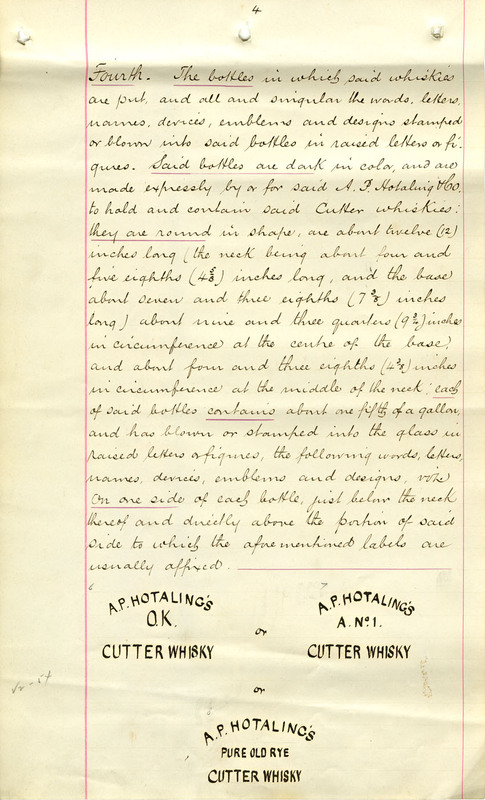 4
Fourth. The bottles in which said whiskies
are put, and all and singular the words, letters,
names, devices, emblems and designs stamped
or blown into said bottles in raised letters or fi-
gures. Said bottles are dark in color, and are
made expressly by or for said A. P. Hotaling & Co.
to hold and contain said Cutter whiskies:
they are round in shape, are about twelve (12)
inches long (the neck being about four and
five eighths (4 5/8) inches long, and the base
about seven and three eighths (7 3/8) inches
long) about nine and three quarters (9 3/4) inches
in circumference at the centre of the base,
and about four and three eighths (4 3/8) inches
in circumference at the middle of the neck; each
of said bottles contains about one fifth of a gallon,
and has blown or stamped into the glass in
raised letters or figures, the following words, letters,
names, devices, emblems and designs, viz:
On one side of each bottle, just below the neck
thereof and directly above the portion of said
side to which the aforementioned labels are
usually affixed.
A.P. HOTALING'S
O.K.
CUTTER WHISKY
or
A.P. HOTALING'S
A. No 1.
CUTTER WHISKY
or
A.P. HOTALING'S
PURE OLD RYE
CUTTER WHISKY